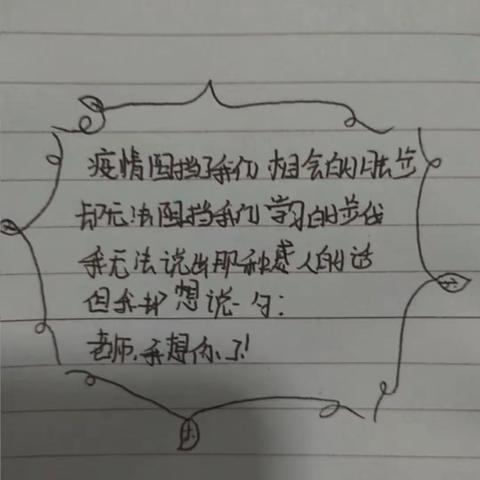 疫情阻挡了我们相会的脚步
却无法阻挡我们学习的步伐
我无法说出那种感人的话
但我却想说一句：
老师,我想你了!